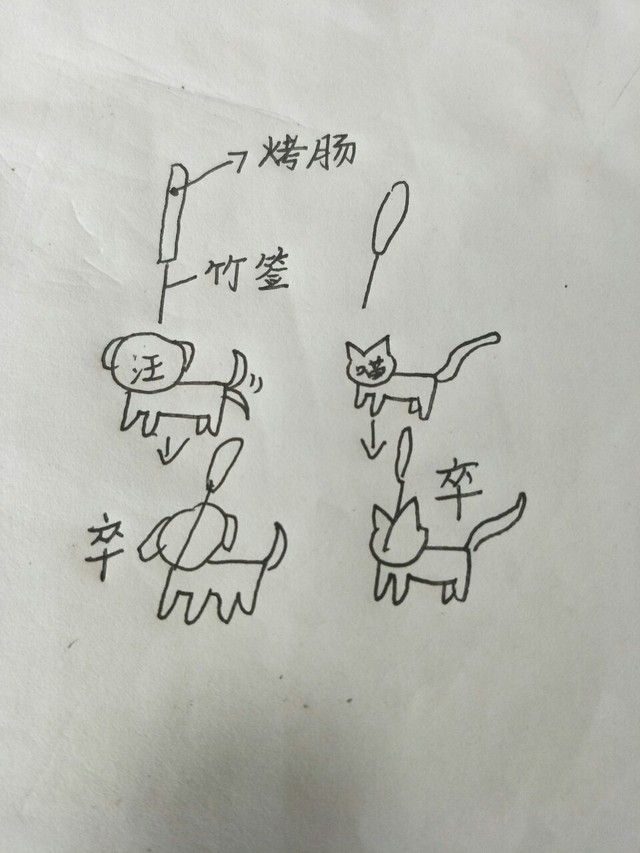 烤肠
竹签
汪
喵
卒
卒